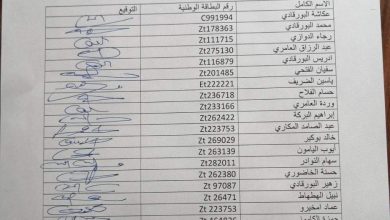 الاسم الكامل رقم البطاقة الوطنية التوقيع
عكاشة البورقادي C991994
محمد البورقادي Zt178363
رجاء الدوازي Zt111715
عبد الرزاق العامري Zt275130
ادريس البورقادي Zt116879
سفيان الفتحي Zt201485
ياسين الضريف Et222221
حسام الفلاح Zt236718
وردة العامري Zt233166
إبراهيم البركة Zt262422
عبد الصامد المكاري Zt223753
خالد بوكير Zt 269029
أيوب اليامون Zt 263139
سهام التوادر Zt282011
حسنة الخاضوري Zt 262380
زهير البورقادي Zt 97087
نبيل الهطهاط Zt 26247
عماد امخيرو Zt 223753